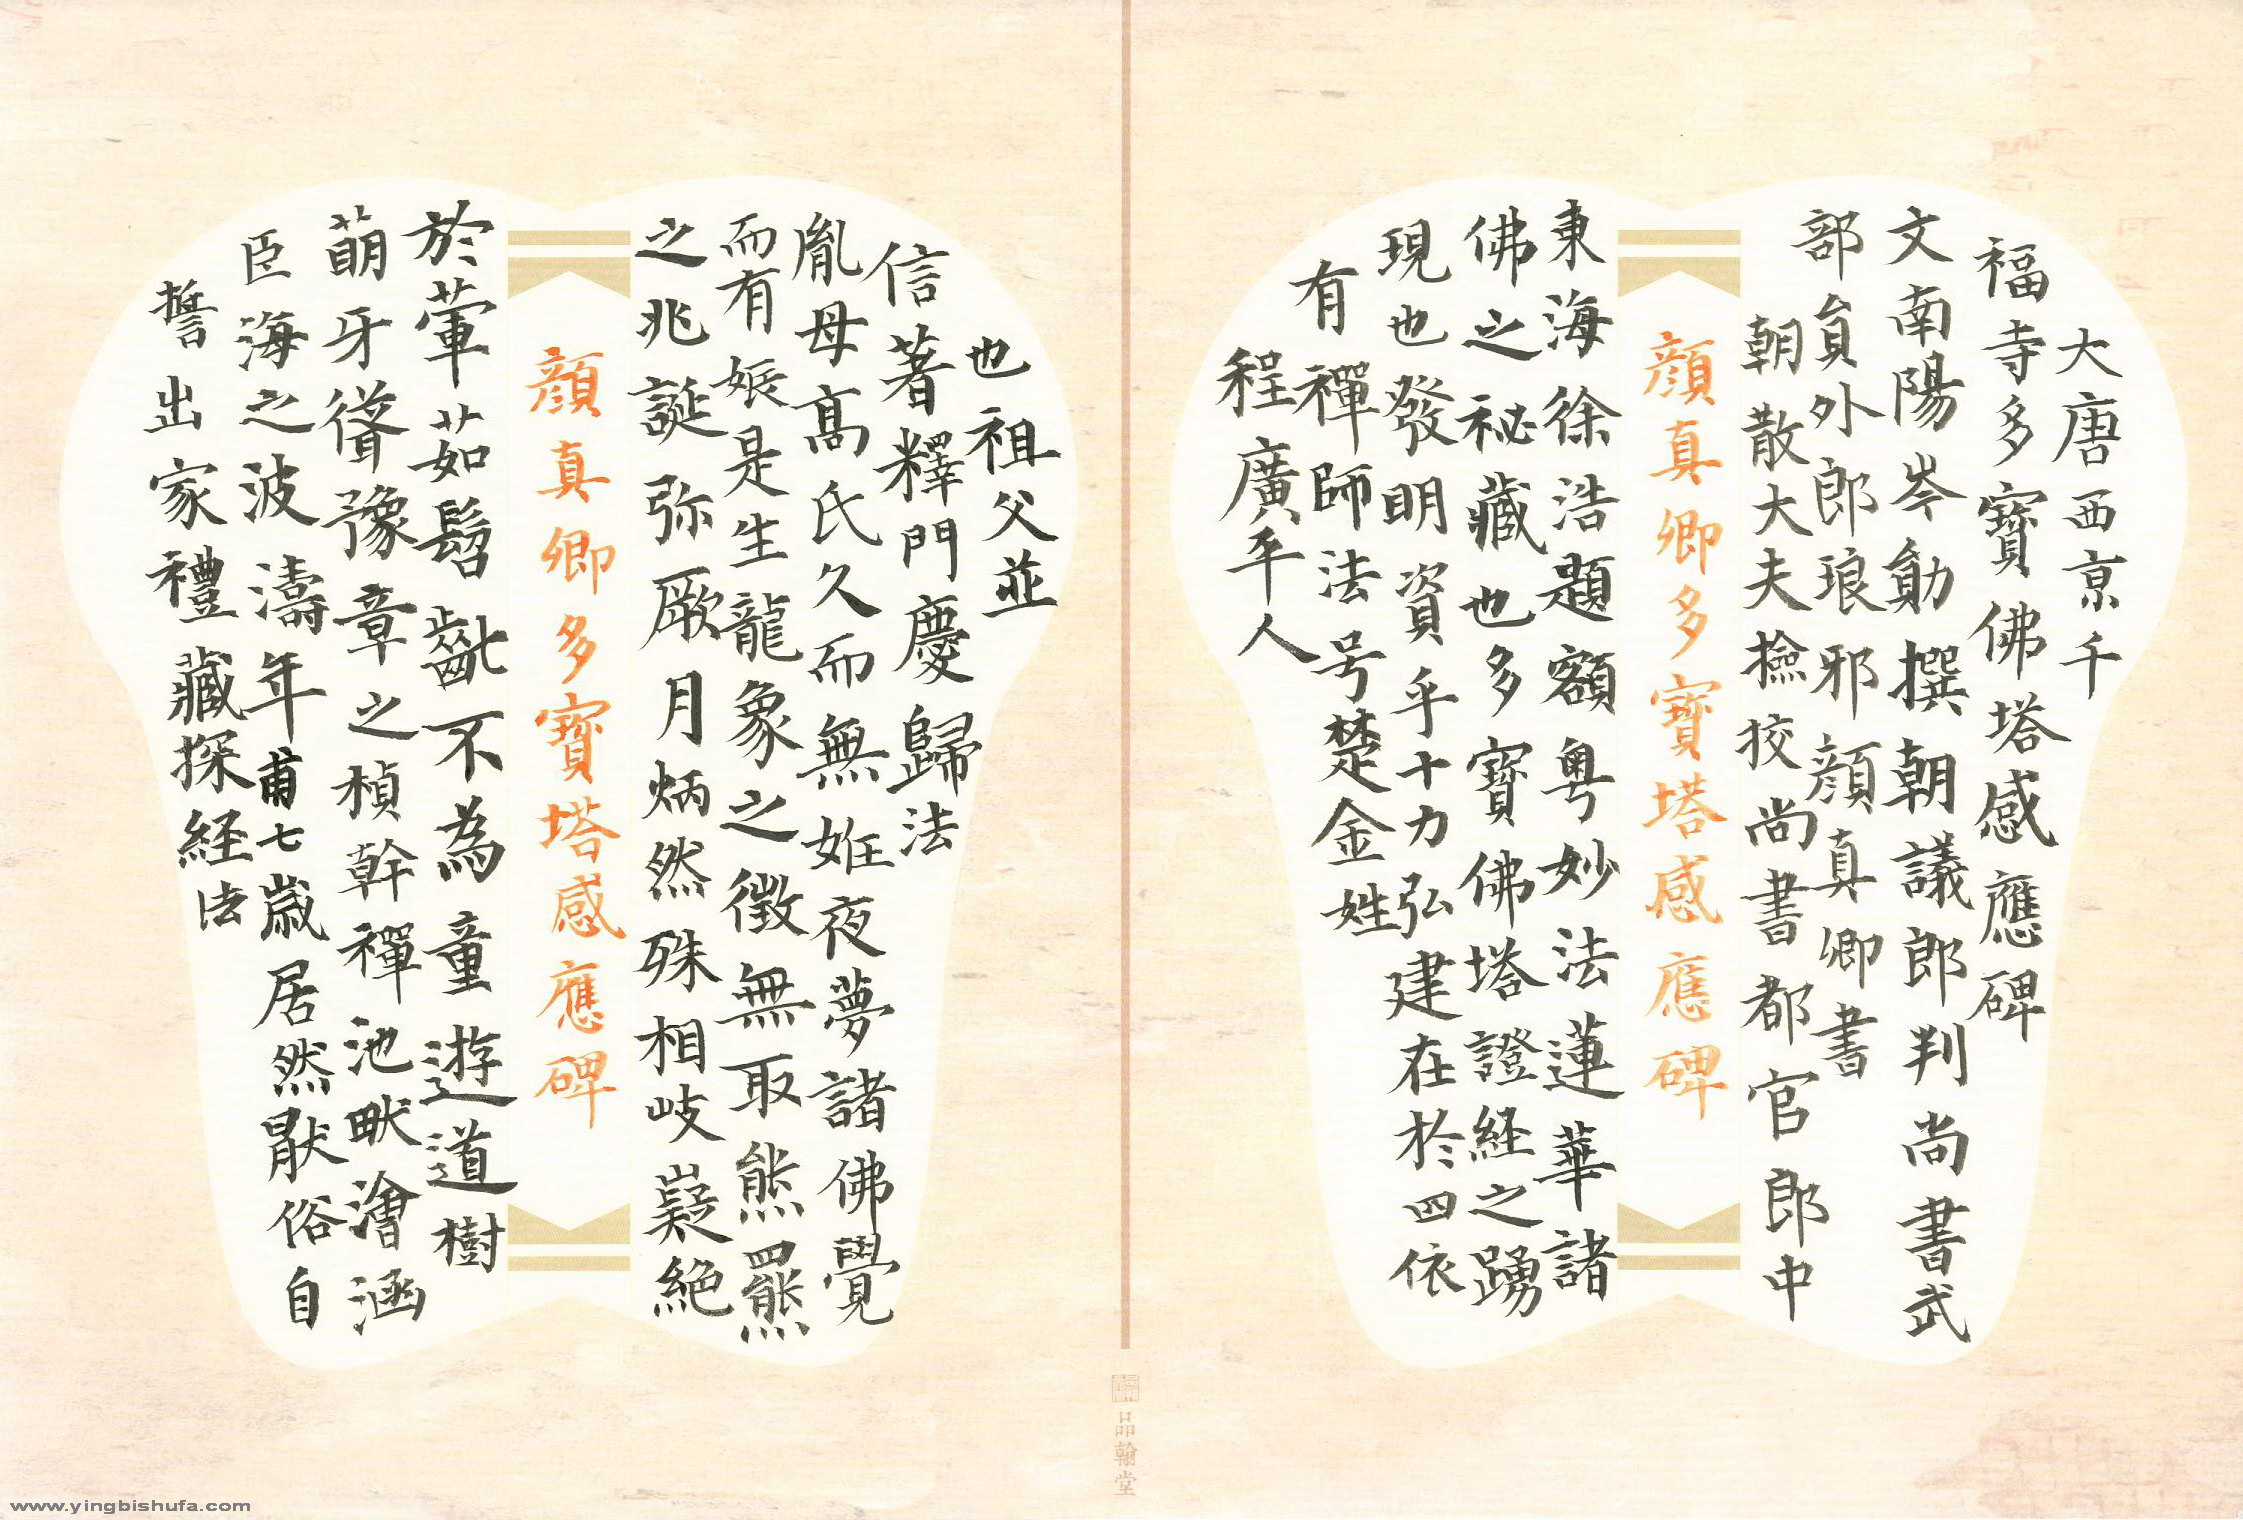 大唐西京千
福寺多寶佛塔感應碑
文南陽岑勛撰朝議郎判尚書武
部員外郎琅邪顏真卿書
朝散大夫撿挍尚書都官郎中
顏真卿多寶塔感應碑
東海徐浩題額粵妙法蓮華諸
佛之祕藏也多寶佛塔證経之踴
現也發明資乎十力弘建在於四依
有禪師法号楚金姓
程廣平人
也祖父並
信著釋門慶歸法
胤母高氏久而無姙夜夢諸佛覺
而有娠是生龍象之徵無取熊羆
之兆誕弥厥月炳然殊相岐嶷絕
顏真卿多寶塔感應碑
於葷茹髫齔不為童遊道樹
萌牙聳豫章之楨幹禪池畎澮涵
臣海之波濤年甫七歲居然猒俗自
誓出家禮藏探経法
品翰堂
www.yingbishufa.com